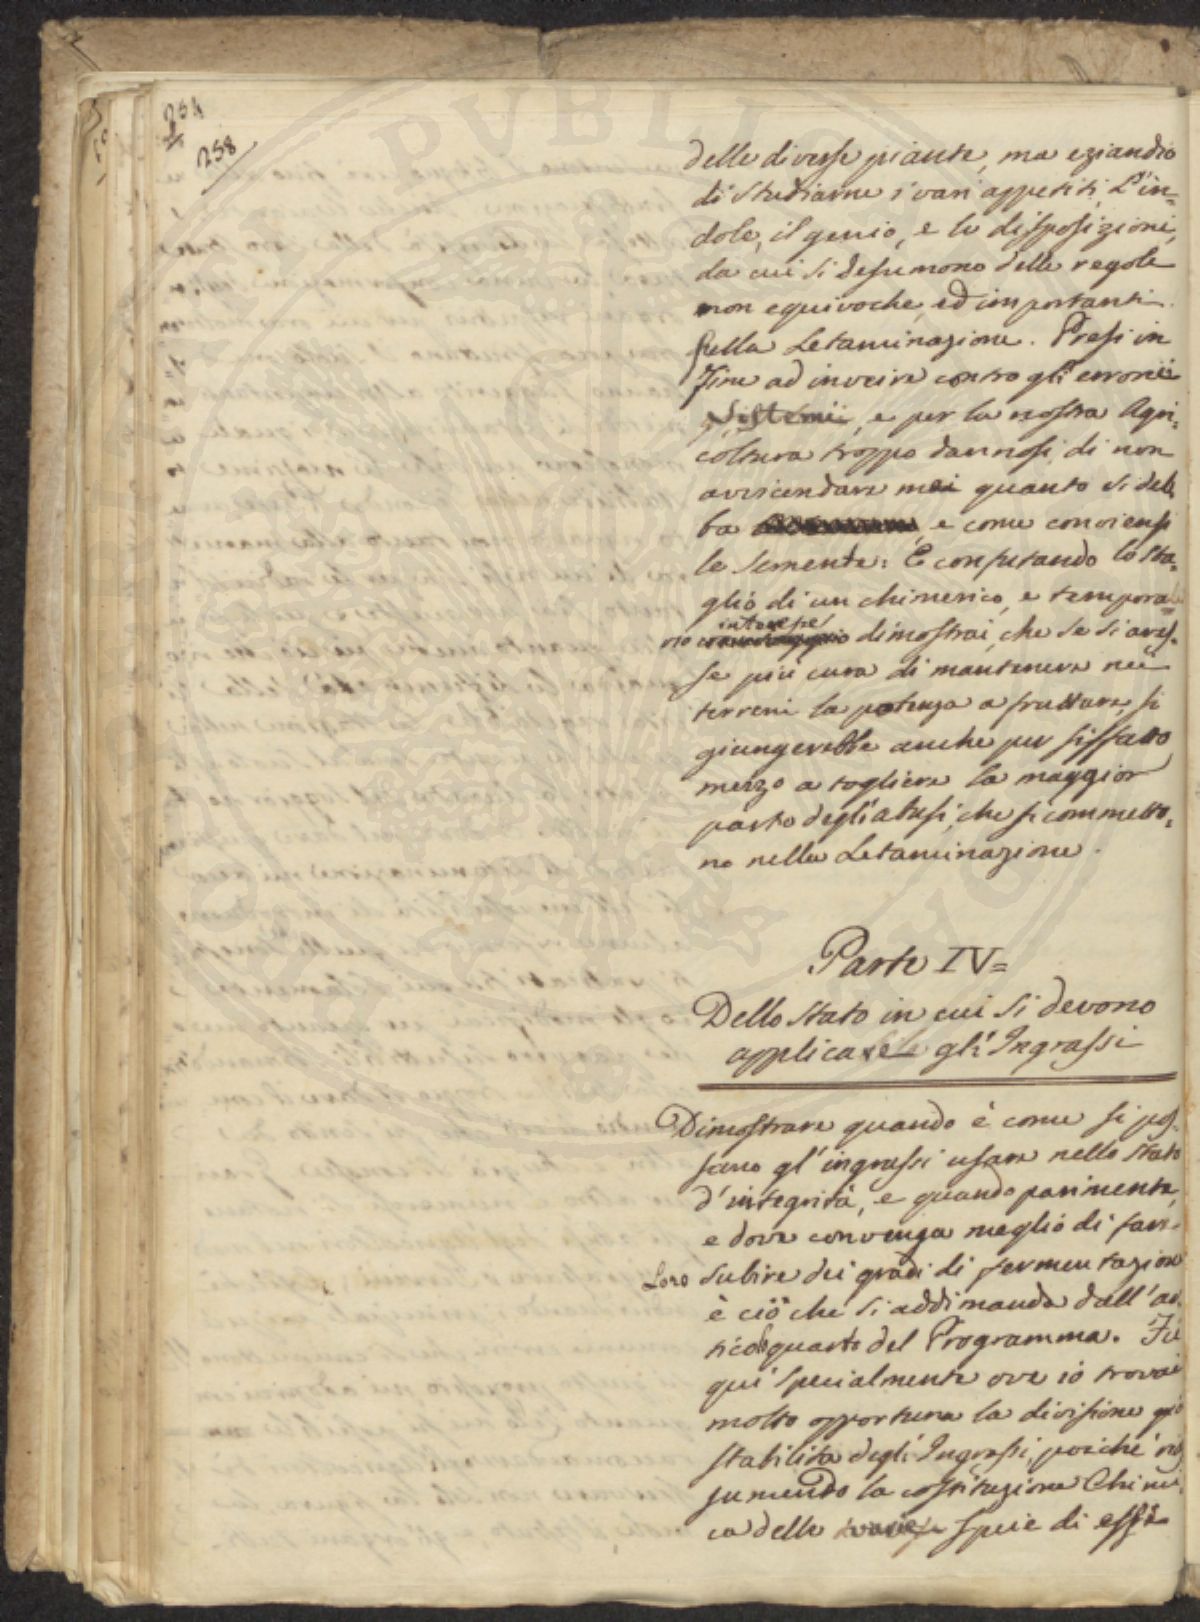 254
258
delle diverse piante, ma eziandio
di studiarne i vari appetiti, l'in=
dole, il genio, e le disposizioni,
da cui si desumono delle regole
non equivoche, ed importanti
sulla Letaminazione. Presi in
fine ad inveire contro gli erronei
sistemi, e per la nostra Agri=
coltura troppo dannosi, di non
avvicendare mai quanto si deb
ba e come conviensi
le sementa: E confutando lo sba=
glio di un chimerico, e tempora=
rio interesse dimostrai, che se si aves=
se più cura di mantenere nei
terreni la potenza a fruttare, si
giungerebbe anche per siffatto
mezzo a togliere la maggior
parte degli abusi, che si commetto=
no nella Letaminazione.
Parte IV=
Dello stato in cui si devono
applicare gli Ingrassi
Dimostrare quando è come si pos=
sano gl'ingrassi usare nello stato
d'integrità, e quando parimente,
e dove convenga meglio di farr=
Loro subire dei gradi di fermentazione
è ciò che si addimanda dall'ar=
ticolo quarto del Programma. Fu
qui specialmente ove io trovai
molto opportuna la divisione già
stabilita degli Ingrassi, poiché ris
sumendo la costituzione Chimi
ca delle varie specie di essi